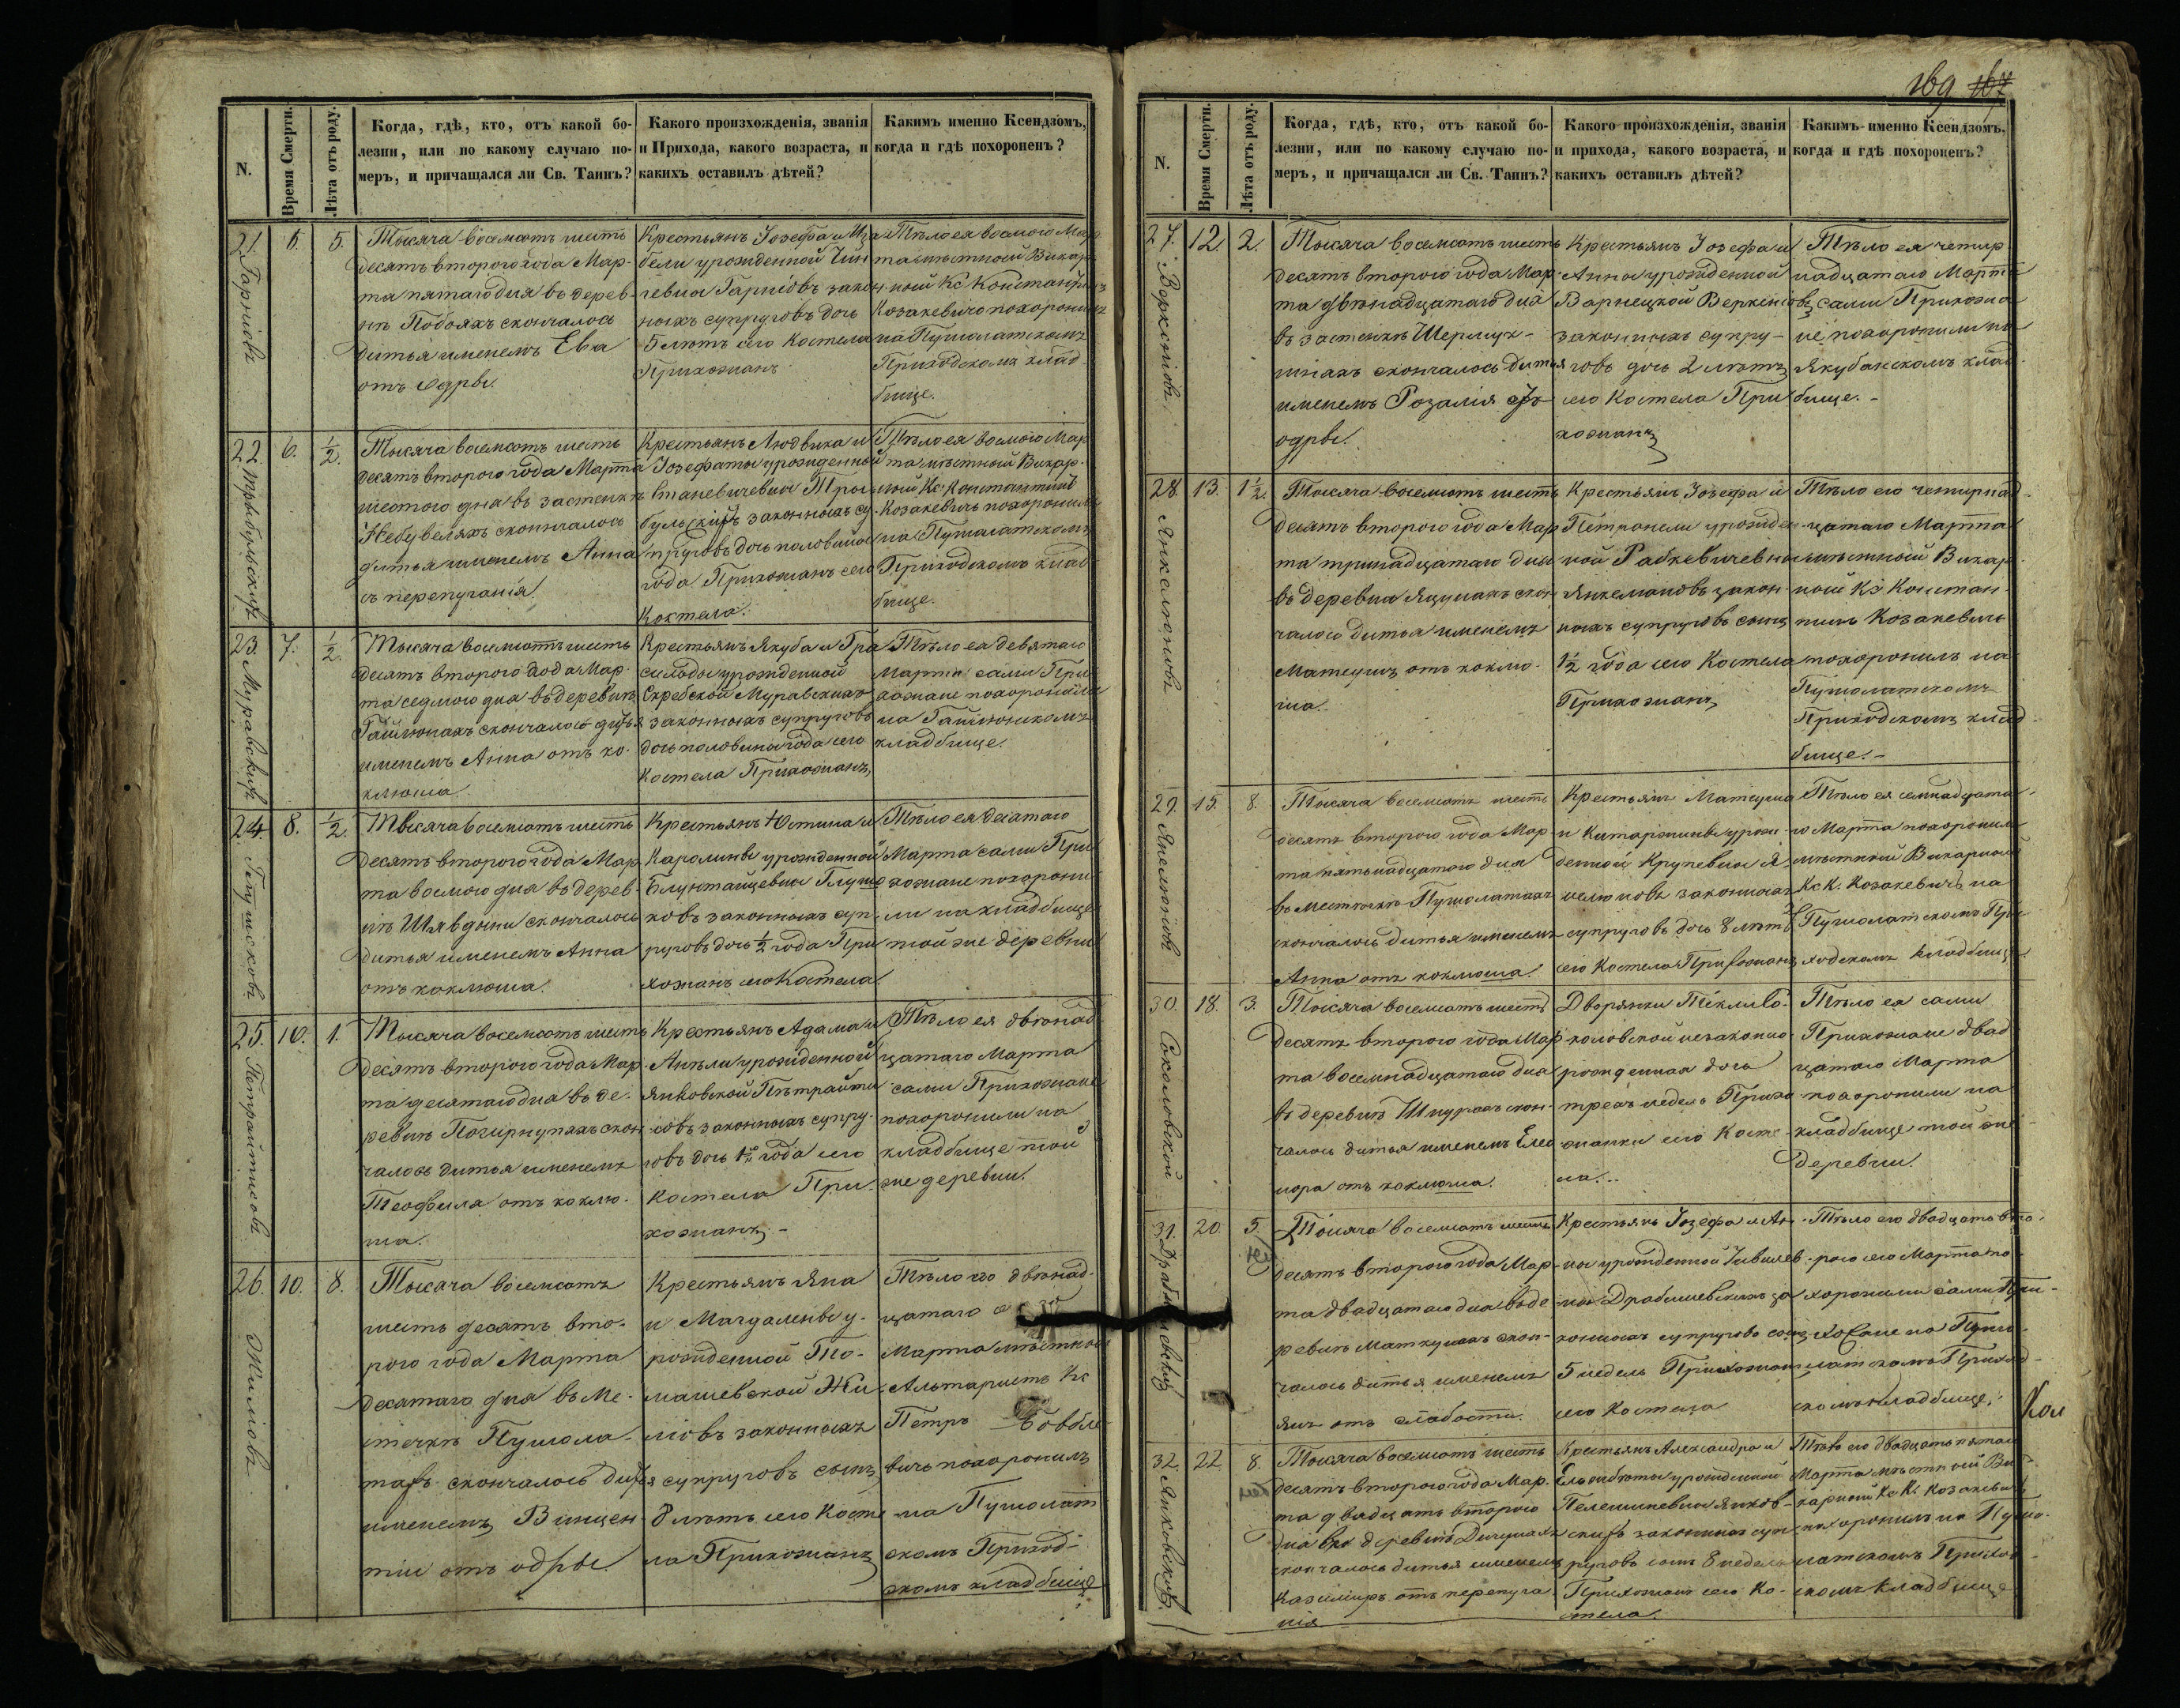 169 167
N.
Время Смерти.
Лѣта отъ роду.
Когда, гдѣ, кто, отъ какой бо-
лезни, или по какому случаю по-
меръ, и причащался ли Св. Таинъ?
Какого произхожденія, званія
и Прихода, какого возраста, и
какихъ оставилъ дѣтей?
Какимъ именно Ксендзомъ,
когда и гдѣ похороненъ?
21.
6.
5.
Тысяча восемсотъ шесть
десятъ второго года Мар-
та пятаго дня въ дерев-
нѣ Побояхъ скончалось
дитья именемъ Ева
отъ одры.
Крестьянъ Іозефа и Иза
бели урожденной
законъ
ныхъ супруговъ дочь
5 лѣтъ сего Костела
Прихожанъ
Тѣло ея восмого Мар
та мѣстный Викар
ный Кс Константинъ
Козакевичъ похоронилъ
на Пушолатскомъ
Приходскомъ клад-
бище.
22
6.
1/2.
Тысяча восемсотъ шесть
десятъ второго года Марта
шестого дня въ застенкѣ
Небувеляхъ скончалось
дитья именемъ Анна
съ перепуганія.
Крестьянъ Людвика и
Іозефаты урожденной
законныхъ су-
пруговъ дочь половина
года Прихожанъ сего
Костела.
Тѣло ея восмого Мар
та мѣстный Викар-
ный Кс. Константинъ
Козакевичъ похоронилъ
на Пушалатскомъ
Приходскомъ клад
бище.
23.
Муравскихъ
7.
1/2.
Тысяча восемсотъ шесть
десятъ второго года Мар-
та седмого дня въ деревнѣ
Гайлюнахъ скончалось дитья
именемъ Анна отъ ко-
клюша.
Крестьянъ Якуба и Гра
сильды урожденной
Скребской Муравскихъ
законныхъ супруговъ
дочь половина года сего
Костела Прихожанъ
Тѣло ея девятаго
Марта сами При
хожане похоронили
на Гайлюнскомъ
кладбище.
24.
8.
1/2.
Тысяча восемсотъ шесть
десятъ второго года Мар
та восмого дня въ дерев-
нѣ Шявдыни скончалось
дитья именемъ Анна
отъ коклюша.
Крестьянъ Юстина и
Каролины урожденной
ковъ законныхъ суп-
руговъ дочь 1/2 года При
хожанъ сего Костела.
Тѣло ея десятаго
Марта сами При
хожане похорони-
ли на кладбище
той же деревни
25.
Петрайтисовъ
10.
1.
Тысяча восемсотъ шесть
десятъ второго года Мар-
та десятаго дня въ де-
ревнѣ скон-
чалось дитья именемъ
Теофиля отъ коклю-
ша.
Крестьянъ Адама и
Анѣли урожденной
Янковской Пѣтрайти
совъ законныхъ супру-
говъ дочь 1го года сего
Костела При-
хожанъ. -
Тѣло ея двѣнад
цатаго Марта
сами Прихожане
похоронили на
кладбище той
же деревни.
26.
Жиліовъ
10.
8.
Тысяча восемсотъ
шесть десятъ вто-
рого года Марта
десятаго дня въ Ме-
стечкѣ Пушола-
тахъ скончалось дитья
именемъ Винцен-
тіи отъ одры.
Крестьянъ Яна
и Магдалены у-
рожденной То-
машевской Жи
ліовъ законныхъ
супруговъ сынъ
8 лѣтъ сего Косте
ла Прихожанъ
Тѣло его двѣнад-
цатаго
Марта мѣстный
Альтаристъ Кс
Петръ
вичъ похоронилъ
на Пушолат
скомъ Приход-
скомъ кладбище
N.
Время Смерти.
Лѣта отъ роду.
Когда, гдѣ, кто, отъ какой бо-
лезни, или по какому случаю по-
меръ, и причащался ли Св. Таинъ?
Какого произхожденія, званія
и прихода, какого возраста, и
какихъ оставилъ дѣтей?
Какимъ именно Ксендзомъ,
когда и гдѣ похороненъ?
27.
12.
2.
Тысяча восемсотъ шесть
десятъ второго года Мар-
та двѣнадцатаго дня
въ застенкѣ
скончалось дитья
именемъ Розалія отъ
одры.
Крестьянъ Іозефа и
Анны урожденной
законныхъ супру-
говъ дочь 2 лѣтъ
сего Костела При
хожанъ
Тѣло ея четыр
надцатаго Марта
сами Прихожа
не похоронили на
Якубанскомъ клад-
бище. -
28.
Янкелюновъ
13.
1 1/2.
Тысяча восемсотъ шесть
десятъ второго года Мар
та тринадцатаго дня
въ деревна Яцунахъ скон
чалось дитья именемъ
Матеушъ отъ коклю-
ша.
Крестьянъ Іозефа и
Петронели урожден-
ной Рабкевичевны
Янкелюновъ закон-
ныхъ супруговъ сынъ
1 1/2 года сего Костела
Прихожанъ
Тѣло его четырнад-
цатаго Марта
мѣстный Викар
ный Кс Констан-
тинъ Козакевичъ
похоронилъ на
Пушолатскомъ
Приходскомъ клад-
бище. -
29
Янелюновъ
15.
8.
Тысяча восемсотъ шесть
десятъ второго года Мар-
та пятьнадцатаго дня
въ местечкѣ Пушолатахъ
скончалось дитья именемъ
Анна отъ коклюша.
Крестьянъ Матеуша
и Катаржины урож-
денной Крупевны Я-
нелюновъ законныхъ
супруговъ дочь 8 лѣтъ
сего Костела Прихожанъ
Тѣло ея семнадцата-
го Марта похоронилъ
мѣстный Викарный
Кс К. Козакевичъ на
Пушолатскомъ При
ходскомъ кладбище.
30.
Соколовской
18.
3.
Тысяча восемсотъ шесть
десятъ второго года Мар
та восемнадцатаго дня
въ деревнѣ Шнурахъ скон-
чалось дитья именемъ Елео
нора отъ коклюша.
Дворянки Теклисо-
коловской незаконно-
рожденная дочь
трехъ недель Прихо
жанки сего Косте-
ла. . .
Тѣло ея сами
Прихожане двад
цатаго Марта
похоронили на
кладбище той же
деревни.
31.
20.
5
нед
Тысяча восемсотъ шесть
десятъ второго года Мар-
та двадцатаго дня въ де
ревнѣ Маткунахъ скон-
чалось дитья именемъ
Янъ отъ слабости.
Крестьянъ Іозефа и Ан-
ны урожденной
за
конныхъ супруговъ сынъ
5 недель Прихожанъ
сего Костела
Тѣло его двадцать вто-
рого сего Марта по-
хоронили сами При-
хожане на Пушо-
латскомъ Приход-
скомъ кладбище.
Кон
32.
Янковскихъ
22
8.
нед
Тысяча восемсотъ шесть
десятъ второго года Мар.
та двадцать второго
дня въ деревнѣ
скончалось дитья именемъ
Казимиръ отъ перепуга-
нія
Крестьянъ Александра и
Ельжбеты урожденной
Янков-
скихъ законныхъ суп-
руговъ сынъ 8 недель
Прихожанъ сего Ко-
стела.
Тѣло его двадцать пятаго
Марта мѣстный Ви-
карный Кс К. Козакевичъ
похоронилъ на Пушо-
латскомъ Приход-
скомъ кладбище